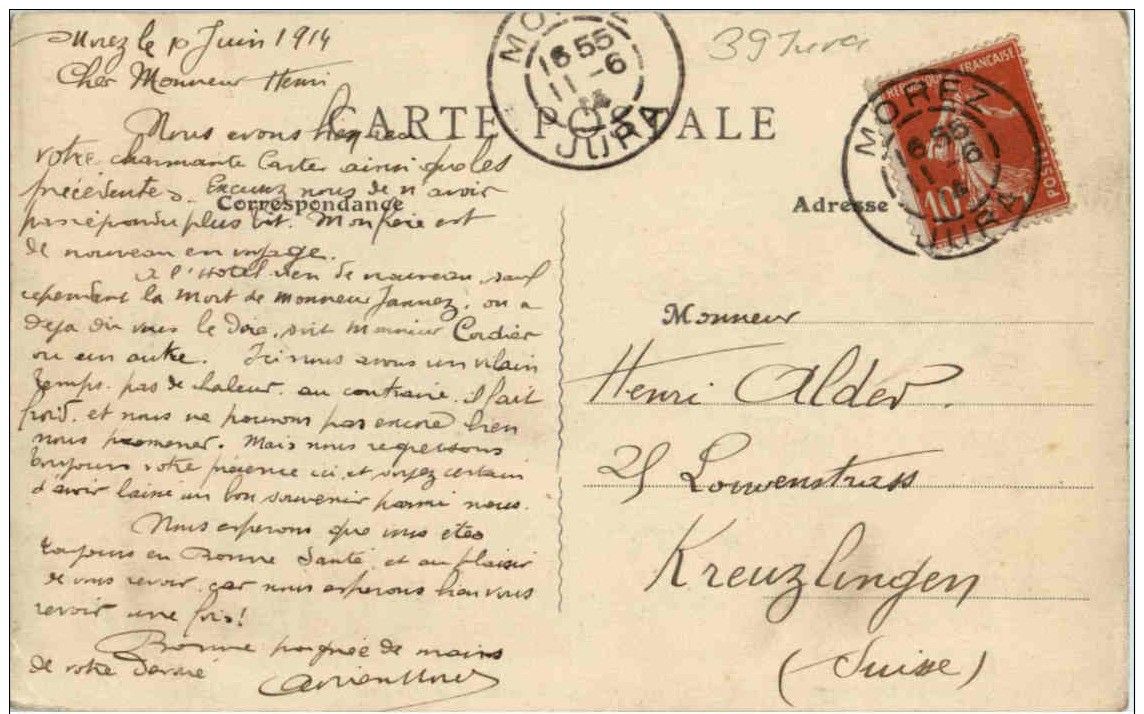 Morez le 10 Juin 1914
Cher Monsieur Henri
CARTE POSTALE
Correspondance
Nous avons bien reçu
votre charmante Carte ainsi que les
précédentes. Excusez nous de n'avoir
pas répondu plus vit. Mon père est
de nouveau en voyage.
A l'Hotel rien de nouveau, sauf
cependant la Mort de Monsieur Jannez, on a
deja dû vous le dire, soit Monsieur Cordier
ou un autre. Ici nous avons un vilain
temps. pas de chaleur, au contraire, il fait
froid, et nous ne pouvons pas encore bien
nous promener. Mais nous regrettons
toujours votre présence ici, et soyez certain
d'avoir laissé un bon souvenir parmi nous.
Nous esperons que vous etes
toujours en Bonne Santé, et au plaisir
de vous revoir, car nous esperons bien vous
revoir une fois!
Bonne poignée de mains
de votre Devoué
MOREZ
16 55
11 -6
14
JURA
39 Jura
REPUBLIQUE FRANÇAISE
POSTES
10
MOREZ
16 55
11 -6
14
JURA
Adresse
Monsieur
Henri Alder.
25 Louwenstrass
Kreuzlingen
(Suisse)